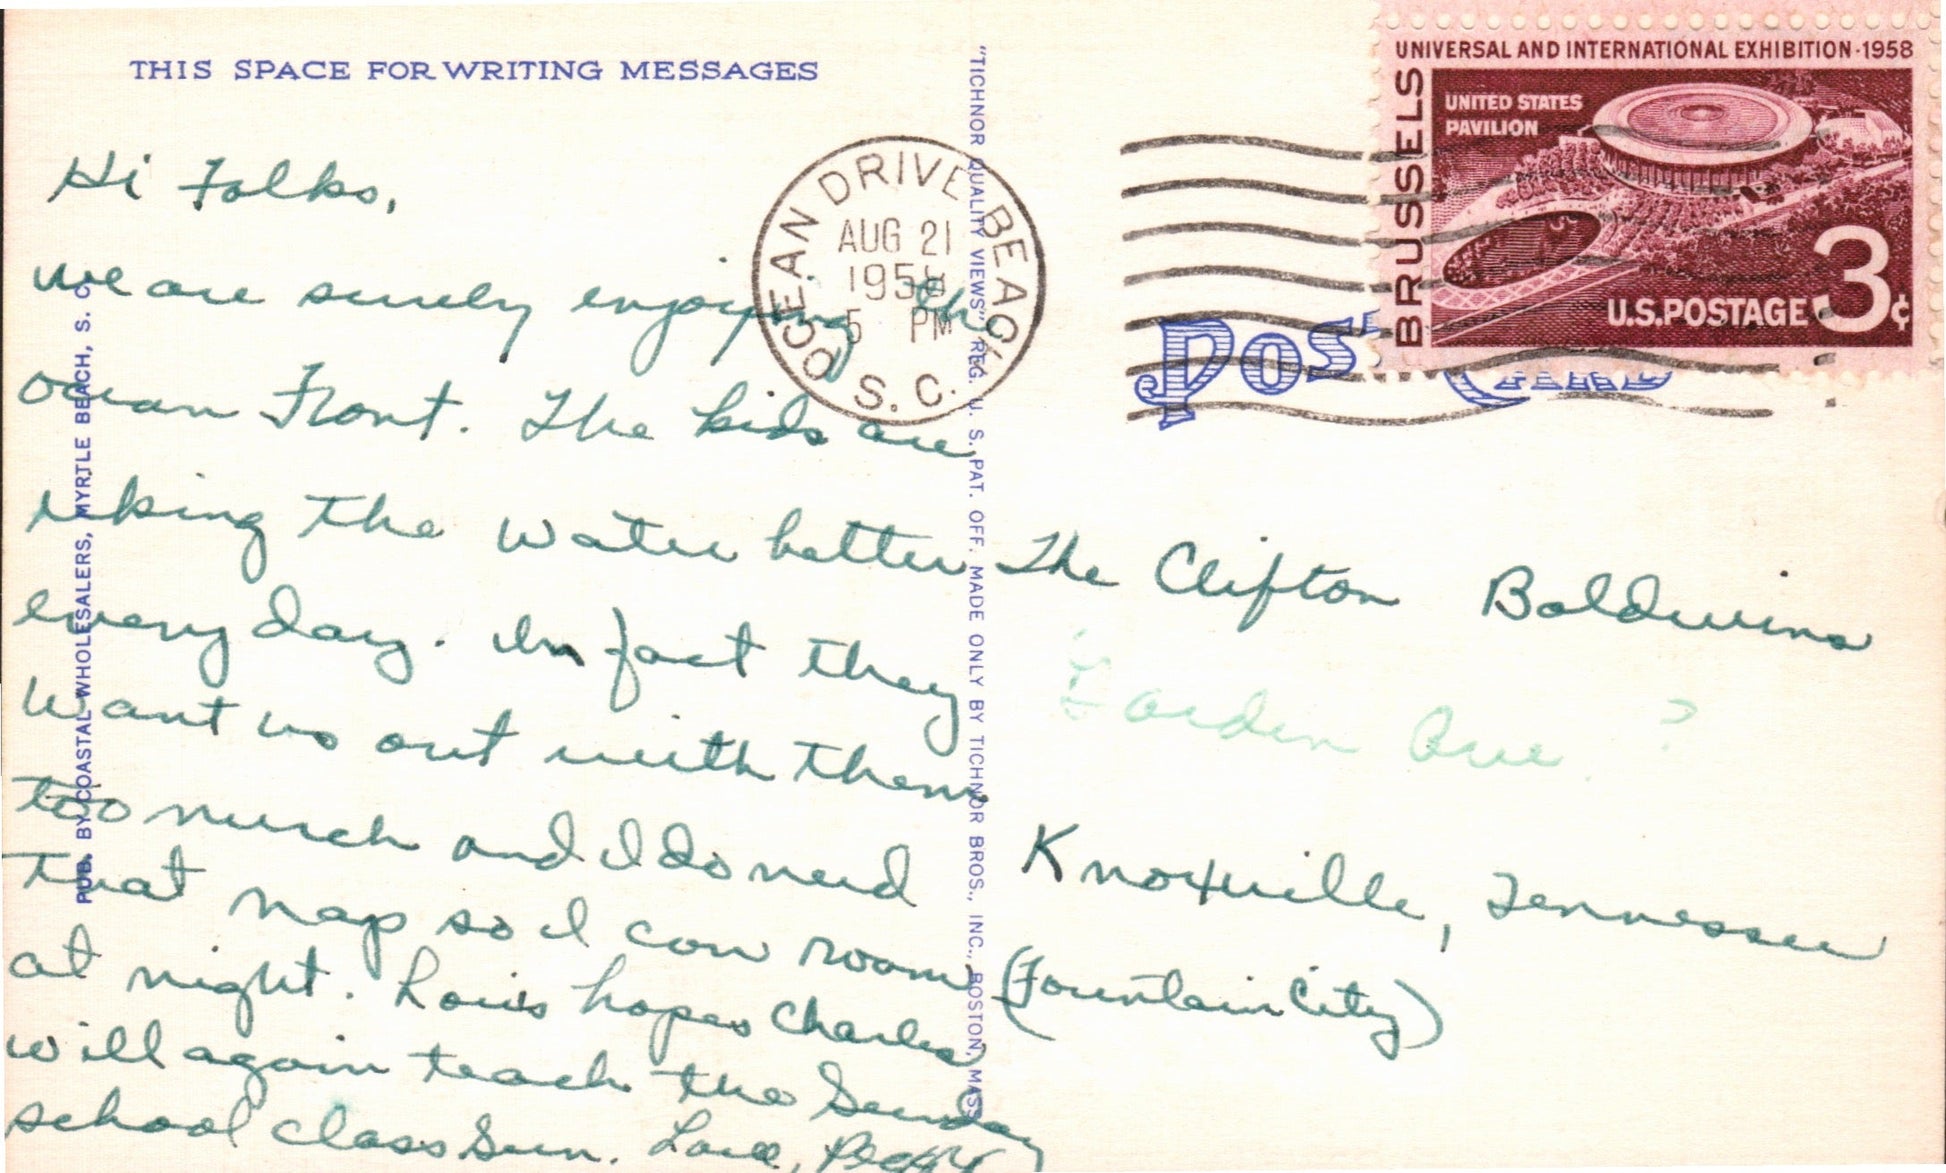 THIS SPACE FOR WRITING MESSAGES
Hi Folks,
we are surely enjoying the
ocean Front. The kids are
liking the water better
every day. In fact they
want us out with them
too much and I do need
that nap so I can roam
at night. Louis hopes Charles
will again teach the Sunday
school class Sun. Love, Peggy
PUB. BY COASTAL WHOLESALERS, MYRTLE BEACH, S. C.
"TICHNOR QUALITY VIEWS" REG. U. S. PAT. OFF. MADE ONLY BY TICHNOR BROS., INC., BOSTON, MASS.
OCEAN DRIVE BEACH
AUG 21
1958
5 PM
S. C.
UNIVERSAL AND INTERNATIONAL EXHIBITION · 1958
BRUSSELS
UNITED STATES
PAVILION
U.S. POSTAGE 3¢
POST CARD
The Clifton Baldwins
Garden Ave ?
Knoxville, Tennessee
(Fountain City)